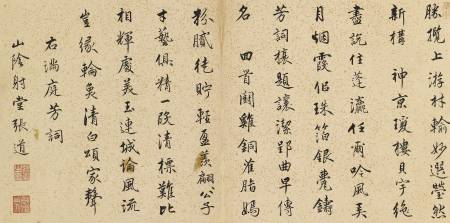 勝攬上游林輸妙選瑩然
新構 神京瓊樓貝宇
盡說住蓬瀛任爾吟風弄
月烟霞侶珠箔銀甍鑄
芳詞榱題讓潔郢曲早傳
名 回首鬪雞銅雀脂嫣
粉膩徒貯輕盈羨翩々公子
才藝俱精一段清標難比
相輝處美玉連城論風流
豈緣輪奐清白頌家聲
右滿庭芳詞
山陰射堂張道